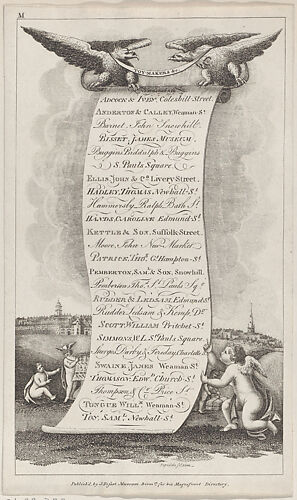 M
TOY-MAKERS &c.
ADCOCK & IVEN, Coleshill Street.
ANDERTON & CALLEY, Weaman-St.
Barnet John Snowhill.
BISSET, JAMES, MUSEUM.
Buggins Biddulph & Buggins
S. Pauls Square.
ELLIS JOHN & Co. Livery Street.
HADLEY, THOMAS, Newhall-St.
Hammersly Ralph Bath St.
HANDS, CAROLINE Edmund St.
KETTLE & SON, Suffolk Street.
Moore, John New Market
PATRICK, Tho.s Gt. Hampton-St.
PEMBERTON, SAM.l & SON, Snowhill.
Pemberton Tho.s St. Pauls Sq.e
RUDDER & LEDSAM, Edmund St.
Rudder Ledsam & Kemp, Do.
SCOTT, WILLIAM Pritchet-St.
SIMMONS, W. L. St. Pauls Square
Sturges Darby & Friday Charlotte St.
SWAINE JAMES Weaman St.
THOMASON, Edw.d Church-St.
Thompson & Co. Price St.
TONGUE WILL.m Weaman-St.
TOY, SAM.l Newhall-St.
Publish'd by J. Bisset Museum Birm.m for his Magnificent Directory.